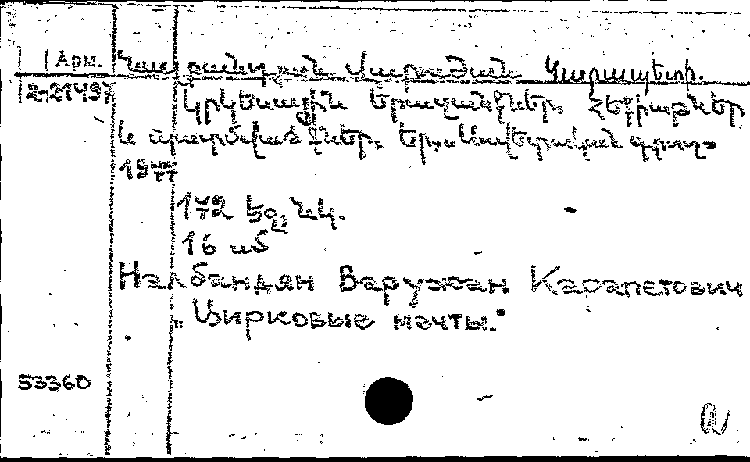 Арм. Նալբանդյան Վարուժան Կարապետի.
2-21437 Կրկեսային երազանքներ. Հեքիաթներ
և պատմվածքներ. Եր., Սովետական գրող.
1977
172 էջ, նկ.
16 սմ
Налбандян Варужан Карапетович
„Цирковые мечты."
53360